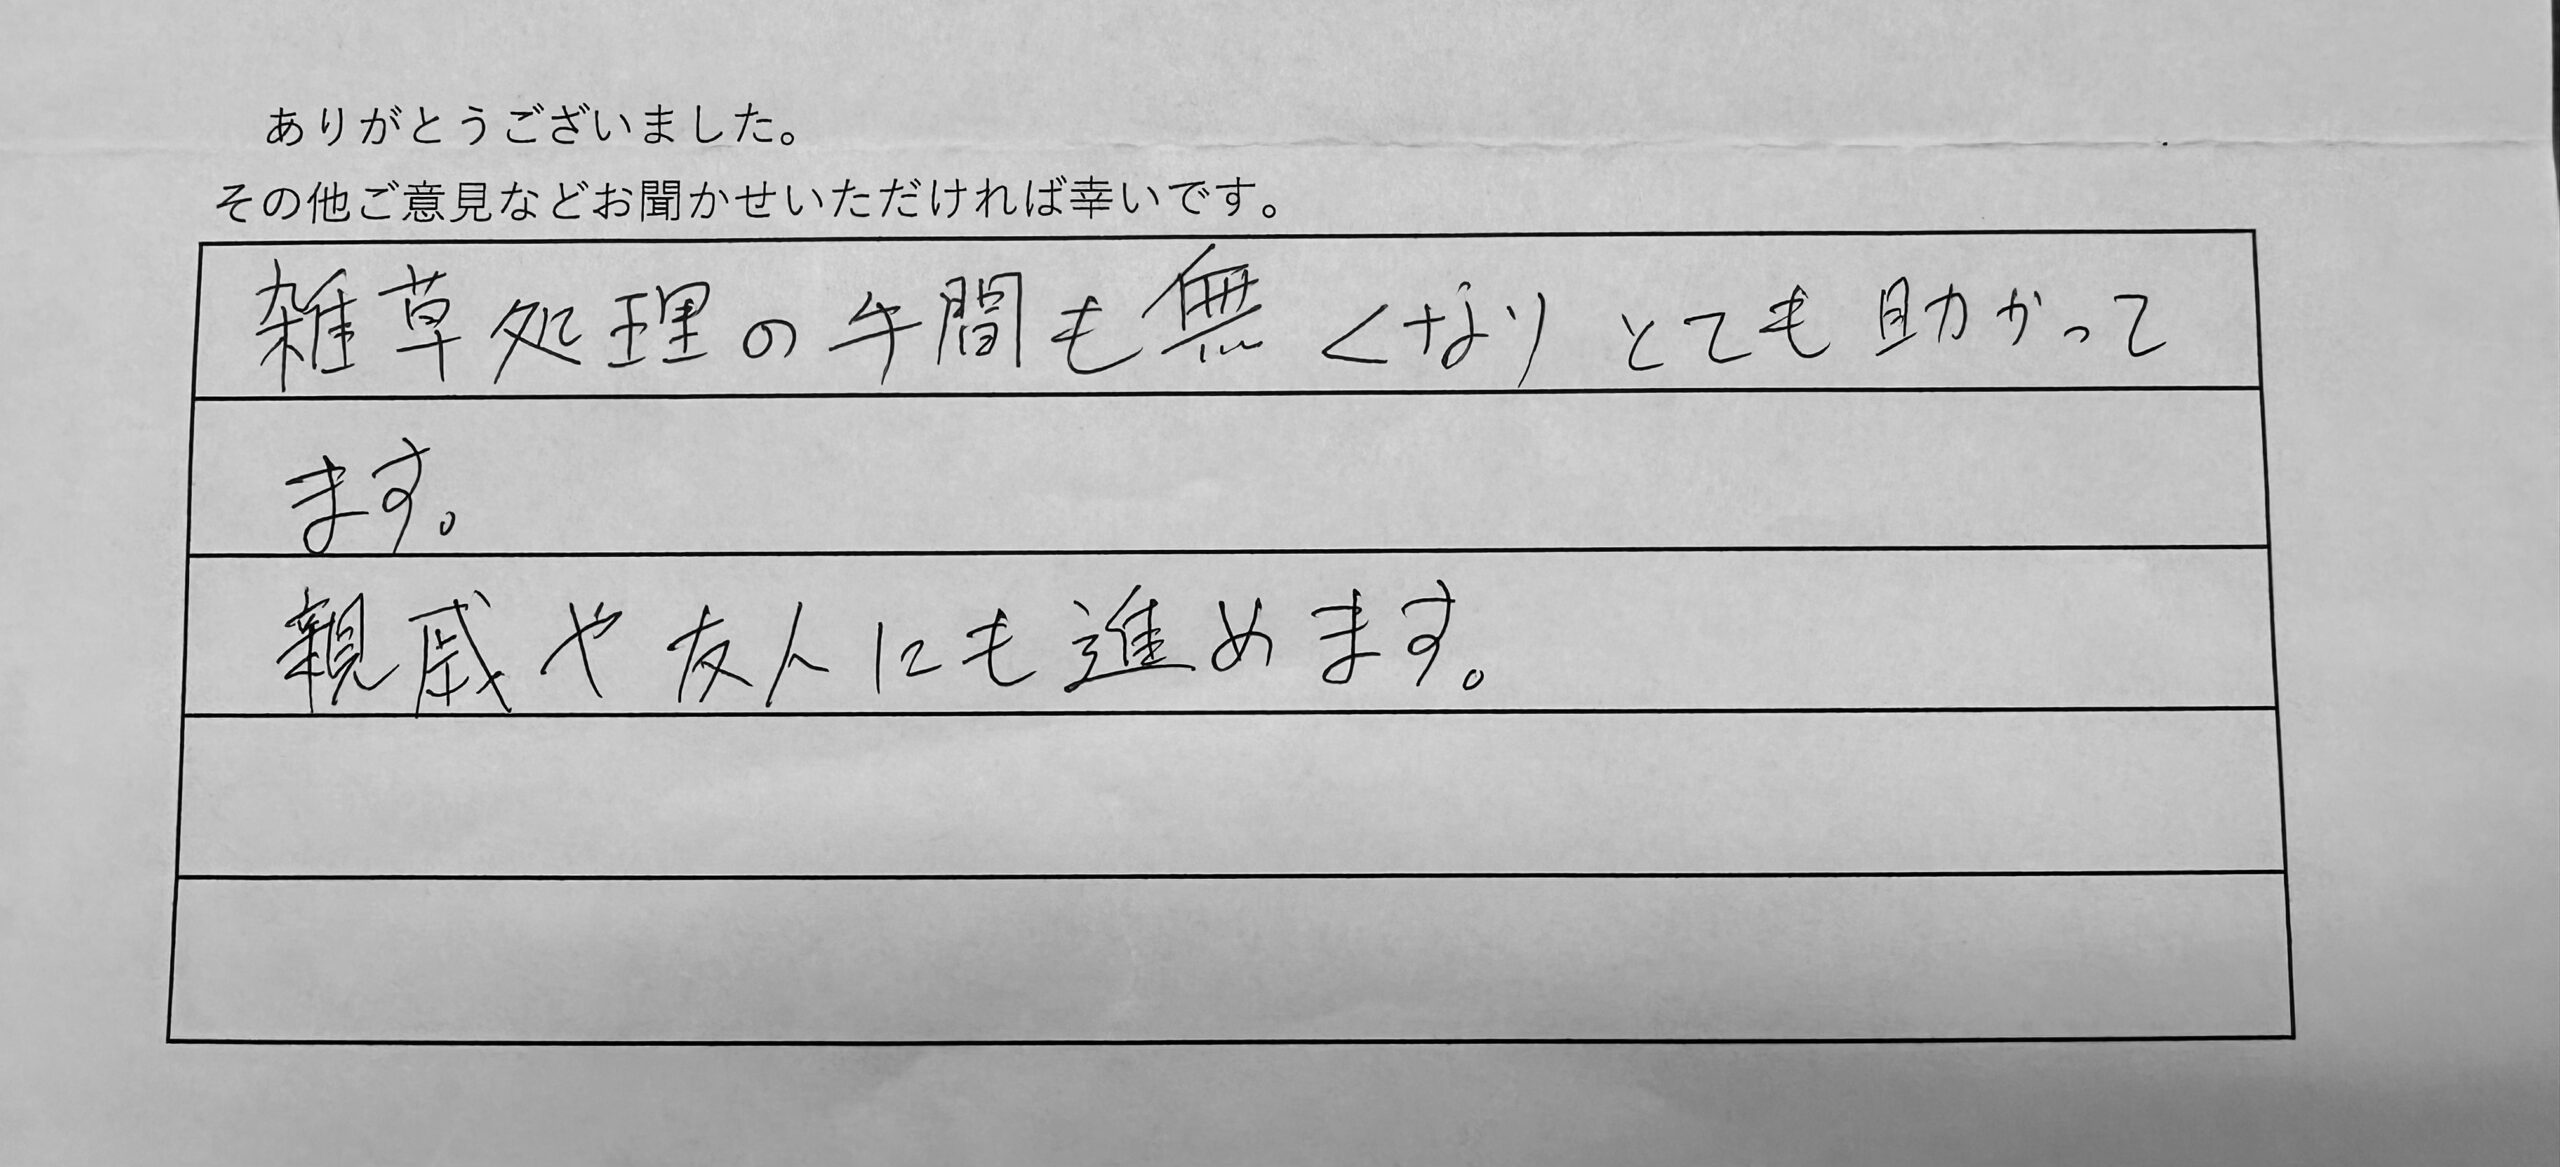 ありがとうございました。
その他ご意見などお聞かせいただければ幸いです。
雑草処理の手間も無くなりとても助かって
ます。
親戚や友人にも進めます。